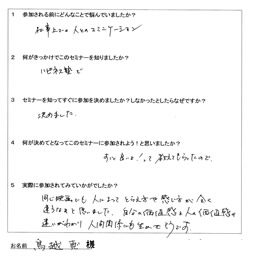 1 参加される前にどんなことで悩んでいましたか?
仕事上での 人とのコミニケーション
2 何がきっかけでこのセミナーを知りましたか?
3 セミナーを知ってすぐに参加を決めましたか?しなかったとしたらなぜですか?
決めました。
4 何が決めてとなってこのセミナーに参加されよう!と思いましたか?
すごく良いよ!って 教えてもらったので。
5 実際に参加されてみていかがでしたか?
同じ映画でも 人によって とらえ方や 感じ方が 全く
違うなぁと 思いました。自分の価値感と 人の価値感の
違いがわかり 人間関係にも
お名前 鳥越 恵 様